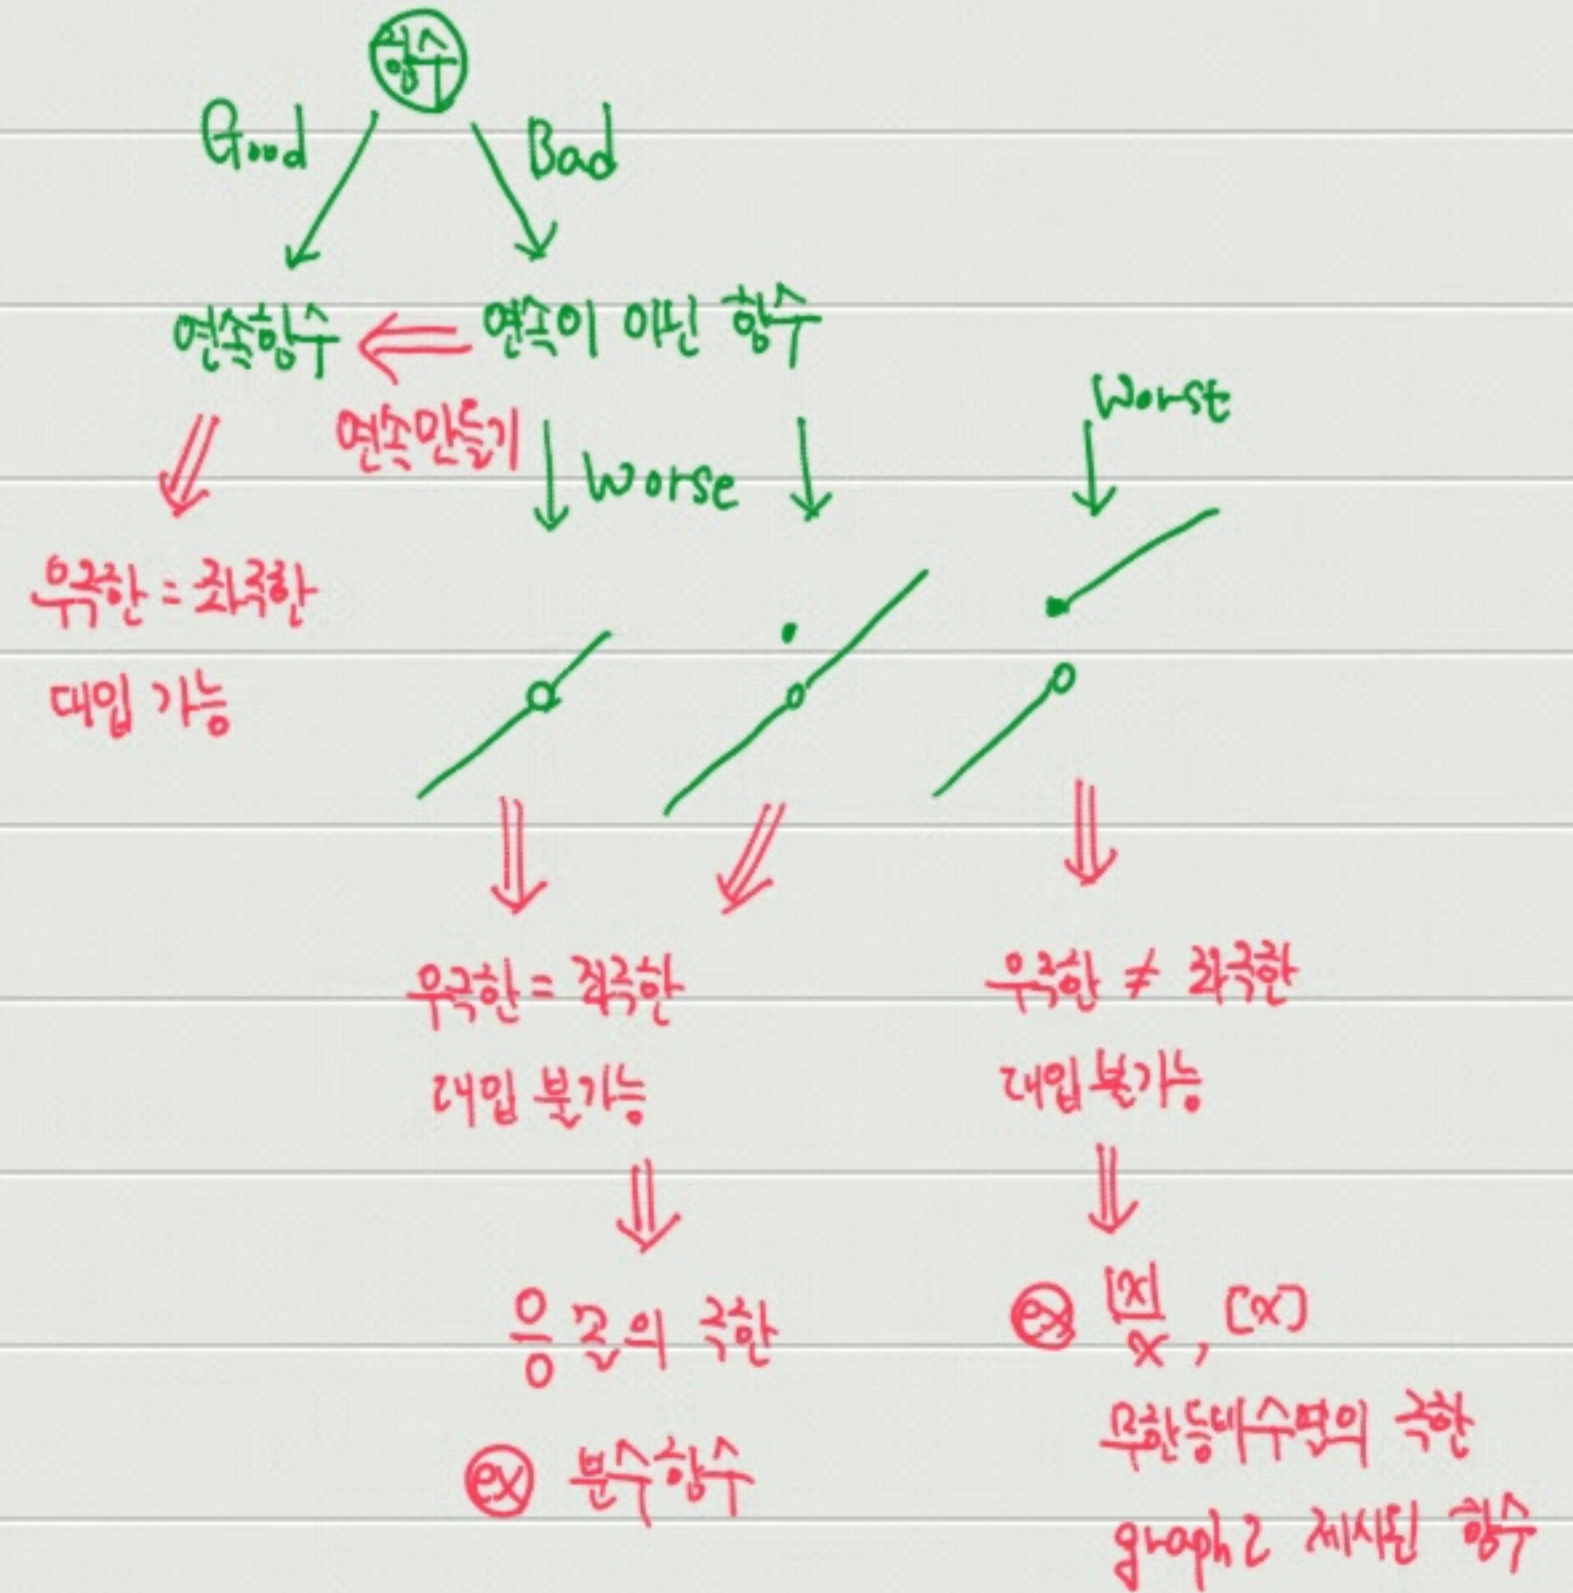 함수
Good Bad
연속함수 연속이 아닌 함수
연속만들기
Worse
Worst
우극한 = 좌극한
대입 가능
우극한 = 좌극한
대입 불가능
0/0 꼴의 극한
ex 분수함수
우극한 ≠ 좌극한
대입 불가능
ex |x|/x, [x]
무한등비수열의 극한
graph로 제시된 함수